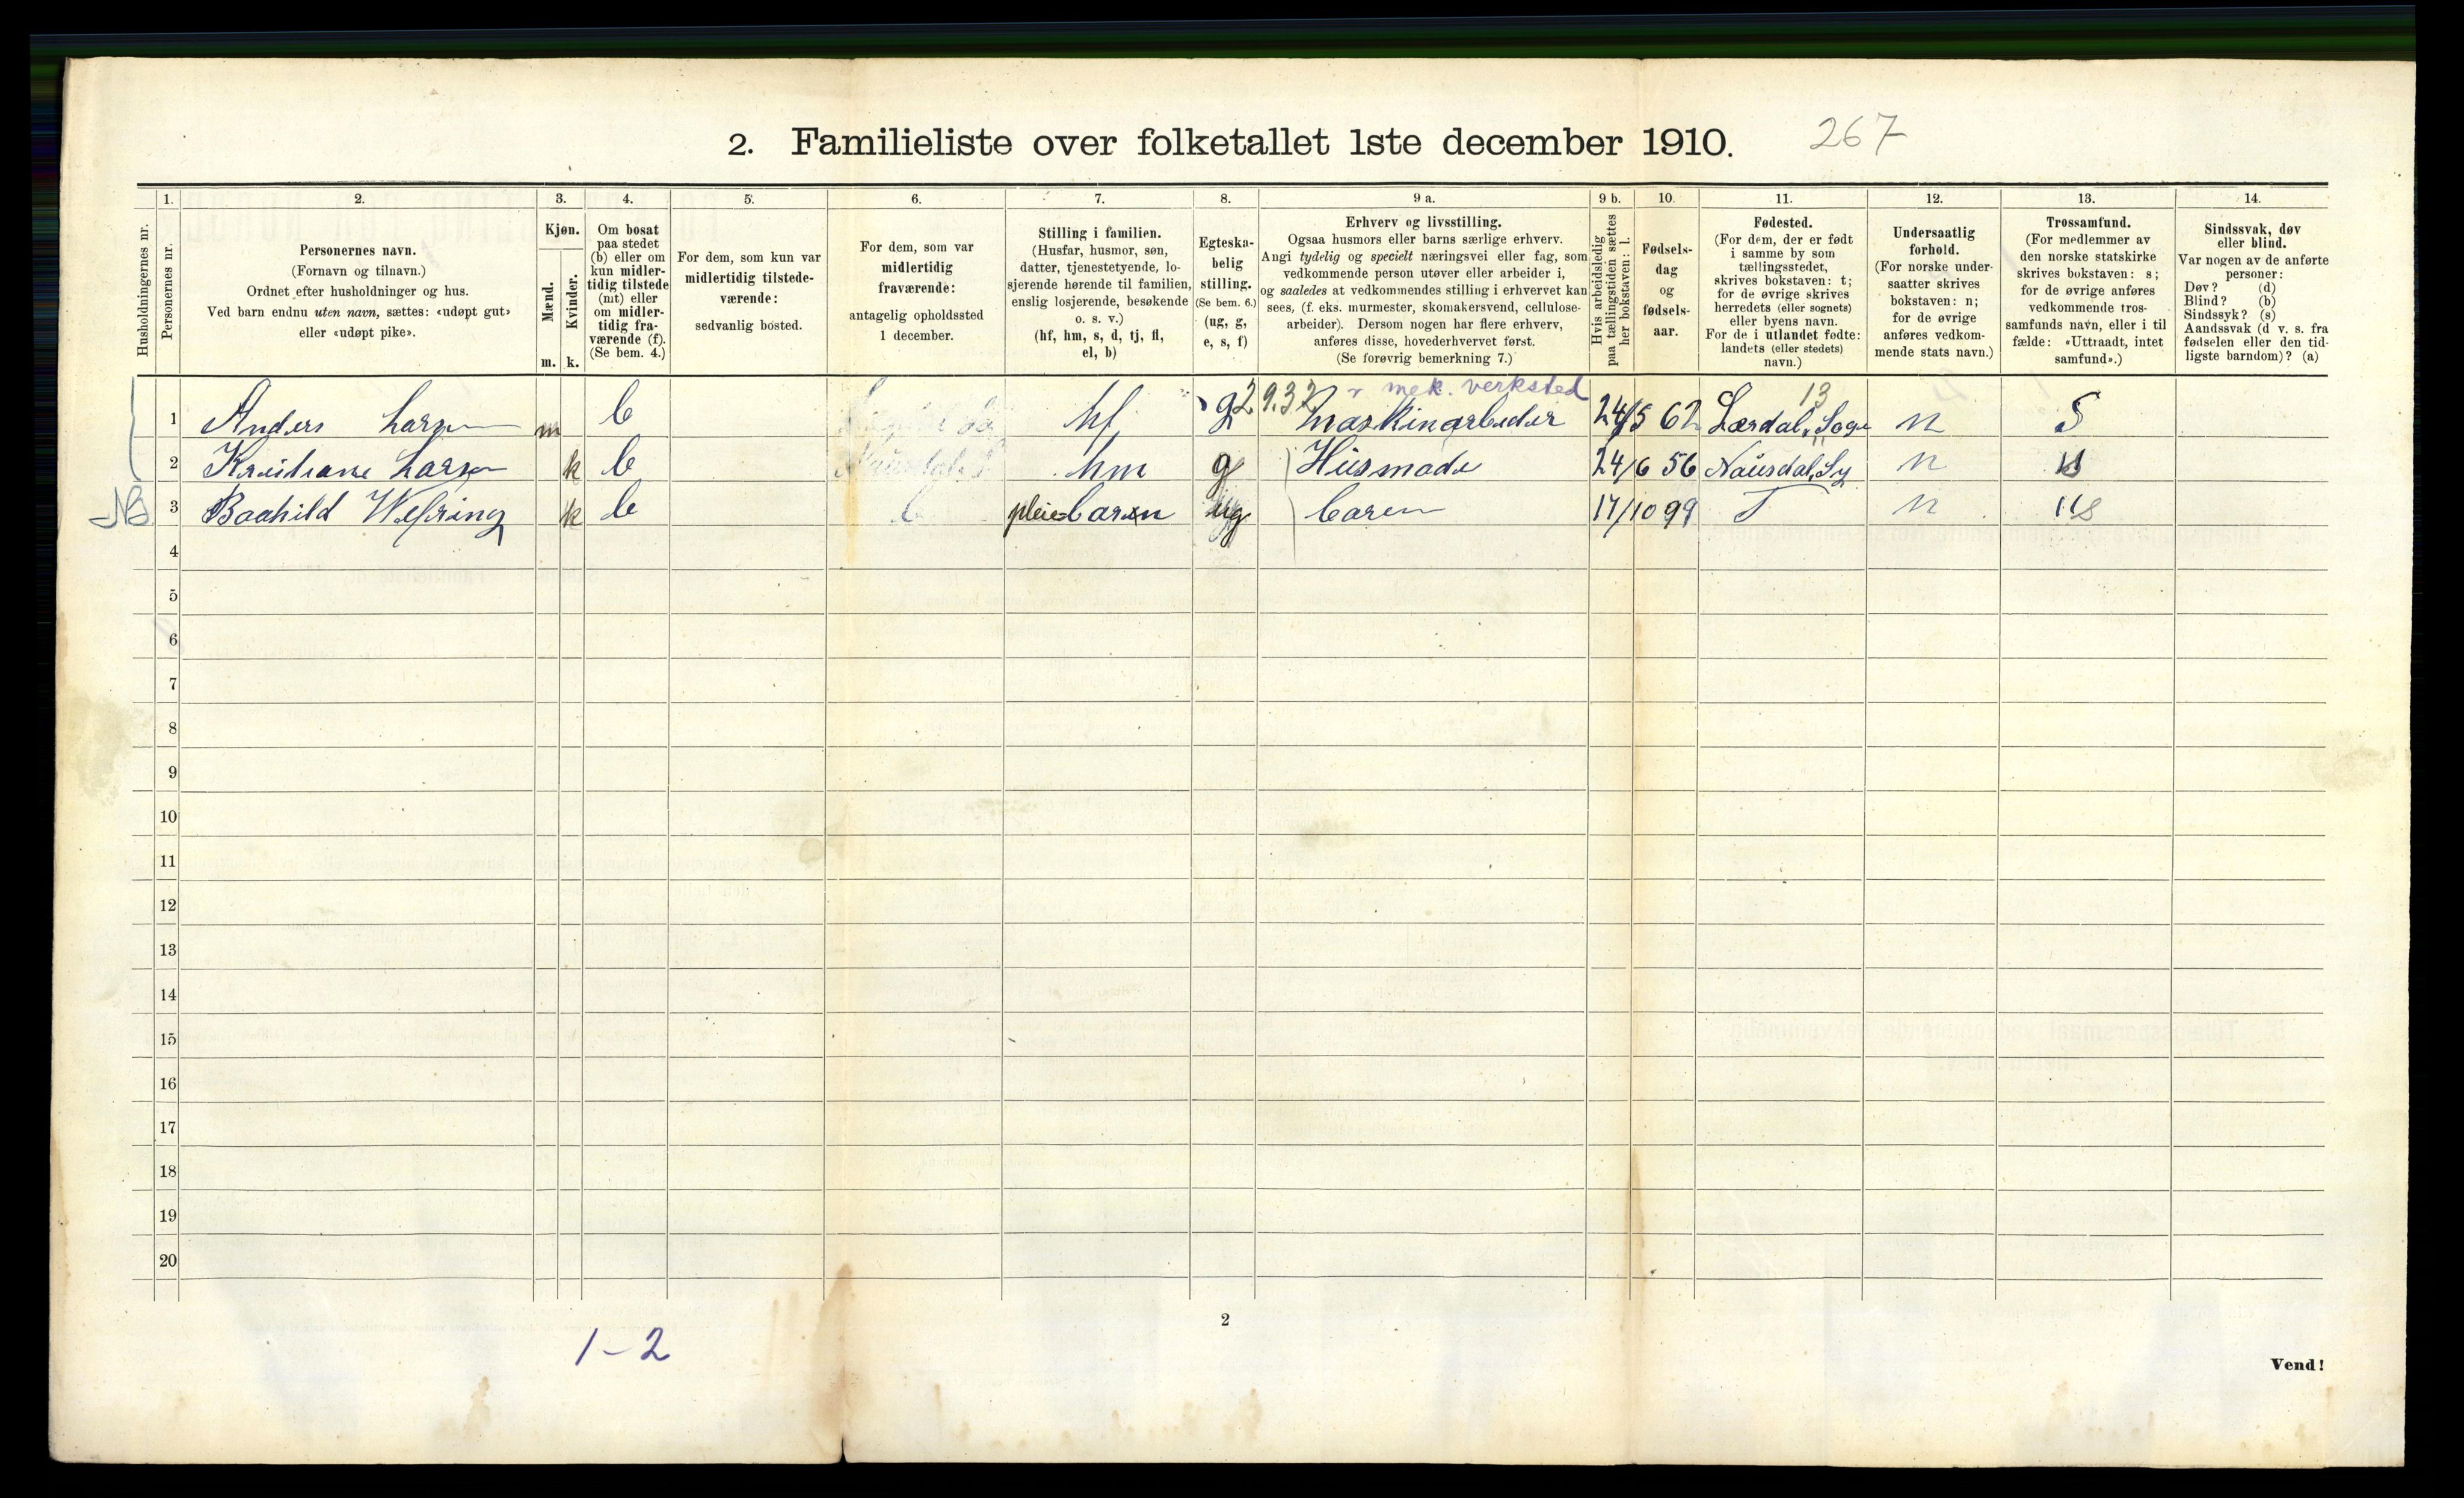 2. Familieliste over folketallet 1ste december 1910. 267
Husholdningernes nr.
1. Personernes nr.
2. Personernes navn.
(Fornavn og tilnavn.)
Ordnet efter husholdninger og hus.
Ved barn endnu uten navn, sættes: «udøpt gut»
eller «udøpt pike».
3. Kjøn.
Mænd. m.
Kvinder. k.
4. Om bosat
paa stedet
(b) eller om
kun midler-
tidig tilstede
(mt) eller
om midler-
tidig fra-
værende (f).
(Se bem. 4.)
5. For dem, som kun var
midlertidig tilstede-
værende:
sedvanlig bosted.
6. For dem, som var
midlertidig
fraværende:
antagelig opholdssted
1 december.
7. Stilling i familien.
(Husfar, husmor, søn,
datter, tjenestetyende, lo-
sjerende hørende til familien,
enslig losjerende, besøkende
o. s. v.)
(hf, hm, s, d, tj, fl,
el, b)
8. Egteska-
belig
stilling.
(Se bem. 6.)
(ug, g,
e, s, f)
9 a. Erhverv og livsstilling.
Ogsaa husmors eller barns særlige erhverv.
Angi tydelig og specielt næringsvei eller fag, som
vedkommende person utøver eller arbeider i,
og saaledes at vedkommendes stilling i erhvervet kan
sees, (f. eks. murmester, skomakersvend, cellulose-
arbeider). Dersom nogen har flere erhverv,
anføres disse, hovederhvervet først.
(Se forøvrig bemerkning 7.)
9 b. Hvis arbeidsledig
paa tællingstiden sættes
her bokstaven: l.
10. Fødsels-
dag
og
fødsels-
aar.
11. Fødested.
(For dem, der er født
i samme by som
tællingsstedet,
skrives bokstaven: t;
for de øvrige skrives
herredets (eller sognets)
eller byens navn.
For de i utlandet fødte:
landets (eller stedets)
navn.)
12. Undersaatlig
forhold.
(For norske under-
saatter skrives
bokstaven: n;
for de øvrige
anføres vedkom-
mende stats navn.)
13. Trossamfund.
(For medlemmer av
den norske statskirke
skrives bokstaven: s;
for de øvrige anføres
vedkommende tros-
samfunds navn, eller i til
fælde: «Uttraadt, intet
samfund».)
14. Sindssvak, døv
eller blind.
Var nogen av de anførte
personer:
Døv? (d)
Blind? (b)
Sindssyk? (s)
Aandssvak (d v. s. fra
fødselen eller den tid-
ligste barndom)? (a)
mek. verksted 13
1 Anders Larsen m b hf g 2 9.32 Maskinarbeider 24/5 62 Lærdal, Sogn n S
2 Kristiane Larsen k b hm g Husmoder 24/6 56 Nausdal n
NB 3 Boahild Wefring k b pleiebarn ug Caren 17/10 99 T n s
4
5
6
7
8
9
10
11
12
13
14
15
16
17
18
19
20
2
1-2
Vend!